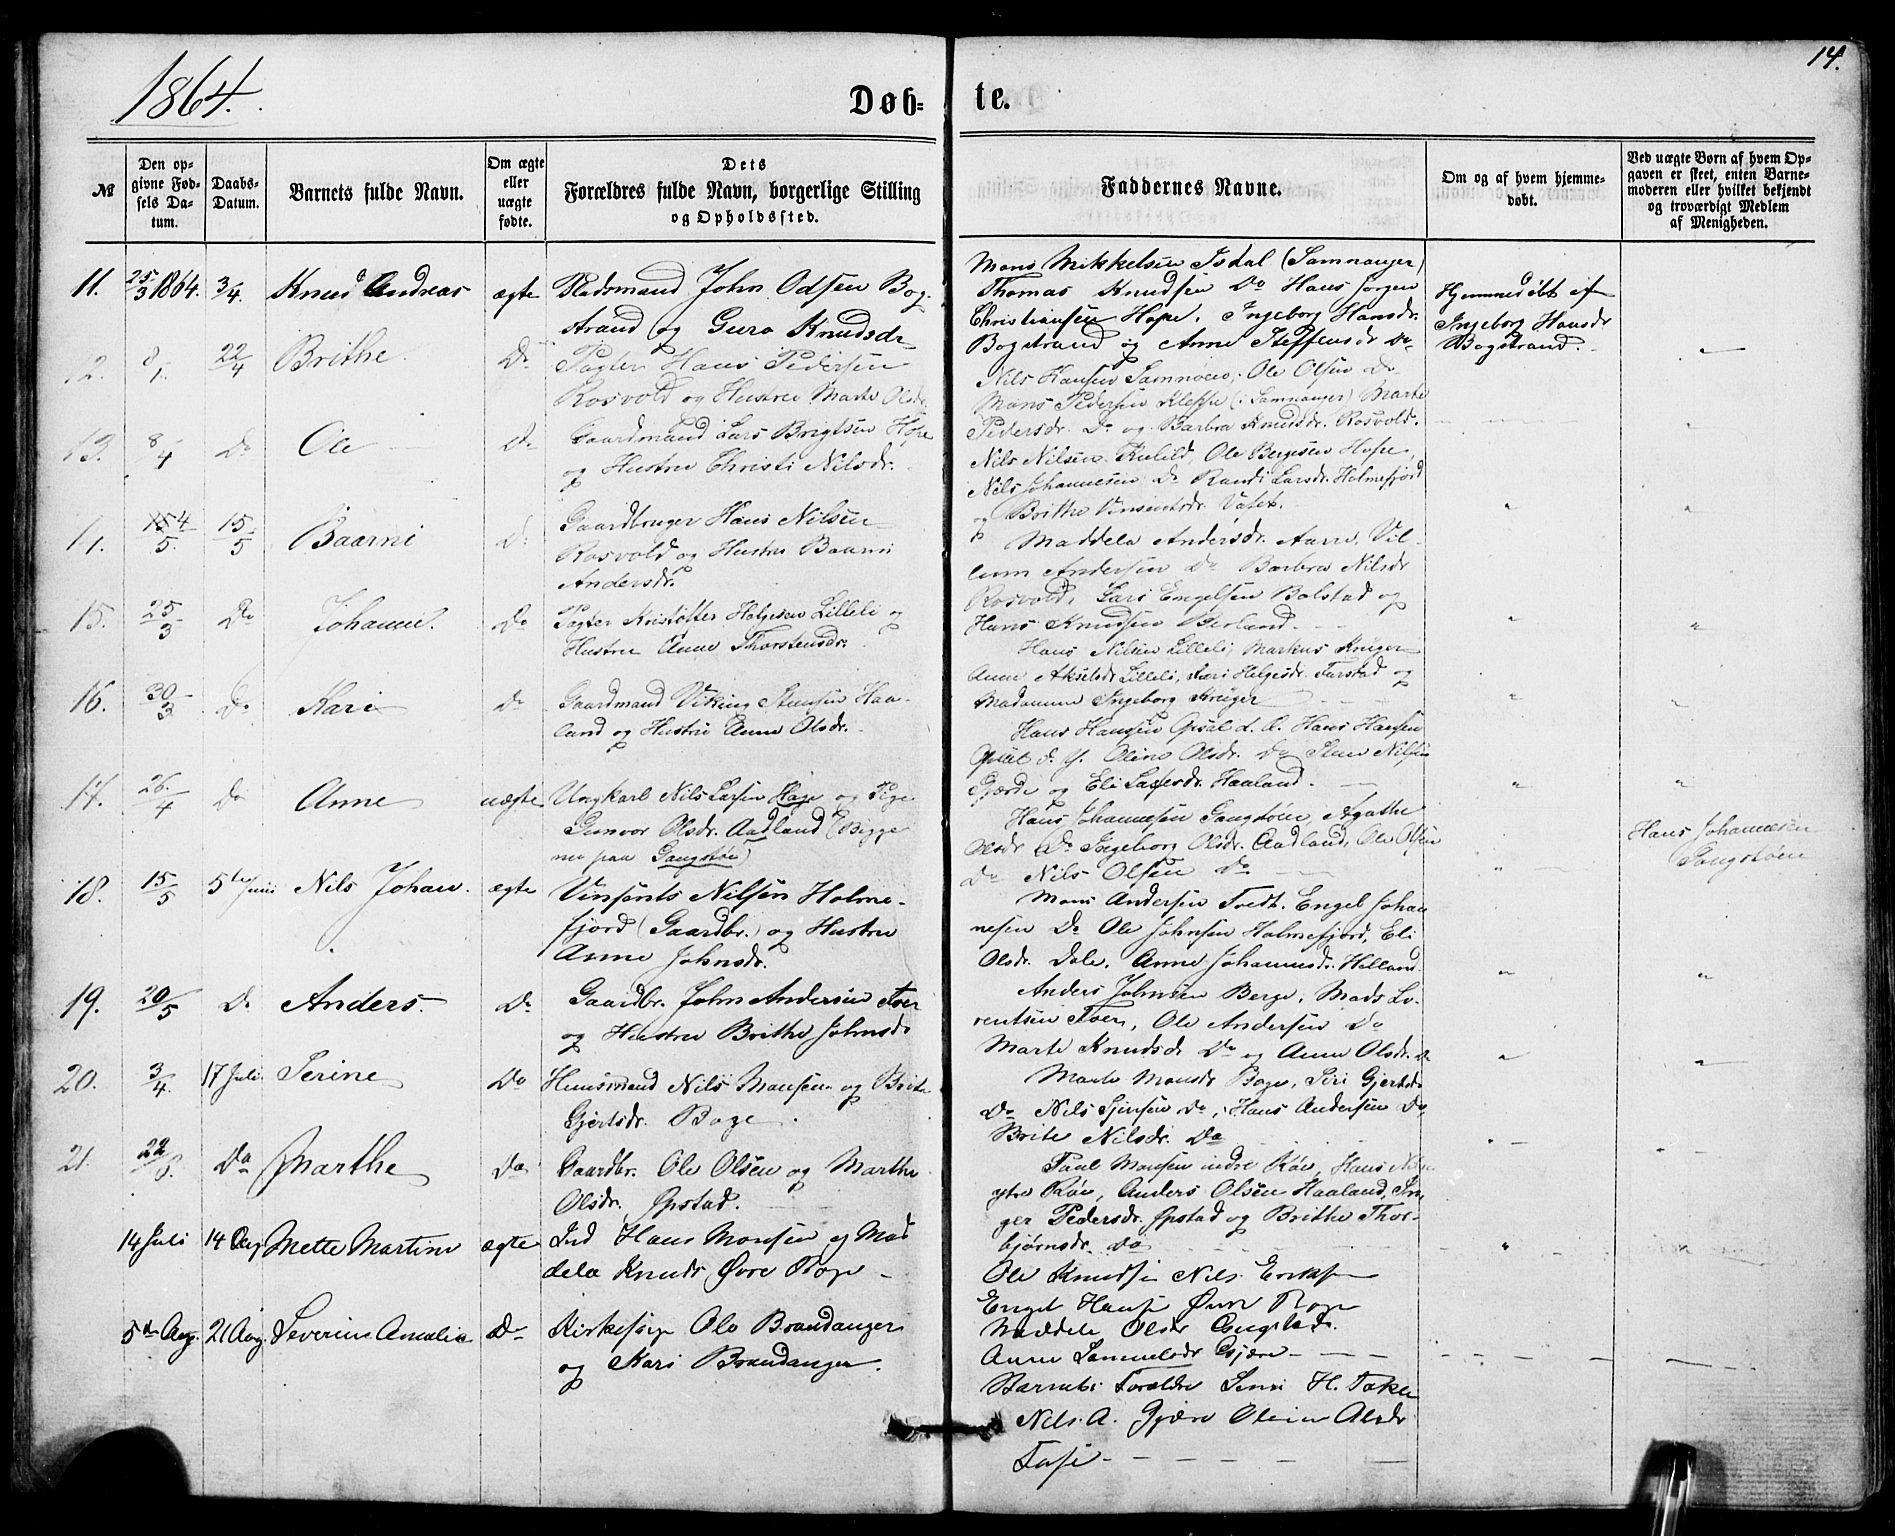 14.
1864.
Døb- te.
№
Den opgivne Fødsels Datum.
Daabs-Datum.
Barnets fulde Navn.
Om ægte eller uægte fødte.
Dets Forældres fulde Navn, borgerlige Stilling og Opholdssted.
Faddernes Navne.
Om og af hvem hjemmedøbt.
Ved uægte Børn af hvem Opgaven er skeet, enten Barnemoderen eller hvilket bekjendt og troværdigt Medlem af Menigheden.
11. 25/3 1864. 3/4. Knud Andreas ægte Pladsmand John Odsen Bog-
strand og Guro Knudsdr
Mons Mikkelsen Isdal (Samnanger)
Thomas Knudsen Do Hans Jørgen
Christiansen Hope, Ingeborg Hansdr.
Bogstrand og Anne Steffensdr Do
Hjemmedøbt af
Ingeborg Hansdr
Bogstrand.
12. 8/1. 22/4 Brithe Do Pagter Hans Pedersen
Rosvold og Hustru Marte Olsdr.
Nils Hansen Samnøen, Ole Olsen Do
Mons Pedersen Kleppe (i Samnanger) Marte
Pedersdr. Do og Barbra Knudsdr. Rosvold.
13. 8/4 Do Ole Do Gaardmand Lars Brigtsen Hope
og Hustru Christi Nilsdr.
Nils Nilsen Ole Bergesen Hope,
Nils Johannesen Do Randi Larsdr. Holmefjord
og Brithe Vinsentsdr. Vatet.
14. 4/5. 15/5 Baarni Do Gaardbruger Hans Nilsen
Rosvold og Hustru Baarni
Andersdr.
Maddela Andersdr. Aarre, Vil-
lum Andersen Do Barbra Nilsdr
Rosvold, Lars Engelsen Bolstad og
Hans Knudsen Berland.
15. 25/3 Do Johanne. Do Pagter Kristoffer Helgesen Lilleli og
Hustru Anne Thorstensdr.
Hans Nilsen Lilleli, Markus Krüger
Anne Akseldr Lilleli, Helgesdr. og
Madamme Ingeborg Krüger
16. 30/3 Do Kari Do Gaardmand Viking Steensen Haa-
land og Hustru Anne Olsdr.
Hans Hansen d. Æ. Hans Hansen
d. Y. Olina Olsdr. Do Steen Nilsen
Gjærde og Eli Haaland.
17. 26/4 Do Anne uægte Ungkarl Nils Larsen Hage og Pige
Gunvor Olsdr. Aadland (Begge
nu paa Gangstøe)
Hans Johannesen Gangstøen, Agathe
Olsdr Do Ingeborg Olsdr. Aadland, Ole Olsen
Do Nils Olsen Do
Hans Johannesen
Gangstøen
18. 15/5 5te Juni Nils Johan. ægte Vinsents Nilsen Holme-
fjord (Gaardbr.) og Hustru
Anne Johnsdr.
Mons Andersen Tvedt. Engel Johan
nesen Do Ole Johnsen Holmefjord, Eli
Olsdr. Dale. Anne Johannesdr. Helland.
19. 20/5 Do Anders. Do Gaardbr. John Andersen
og Hustru Brithe Johnsdr
Anders Johnsen Berge, Mads Lo-
rentsen Ole Andersen Do
Marte Knudsdr Do og Anne Olsdr. Do
20. 3/4. 17 Juli. Serine Do Huusmand Nils Monsen og Brite
Gjertsdr. Boge.
Marte Monsdr Boge, Siri Gjertsdr
Do Nils Do, Hans Andersen Do
Brite Nilsdr. Do
21. 22/6. Do Marthe Do Gaardbr. Ole Olsen og Marthe
Olsdr. Øpstad.
Paul Monsen indre Røe, Hans
ytre Røe, Anders Olsen Haaland, In-
ger Pedersdr. Øpstad og Brithe Thor-
bjørnsdr. Do
14 Juli 14 Aug Mette Martine ægte Ind Hans Monsen og Mad
dela Knuds Øvre Boge
Ole Knudsen Nils Eriksen
Engel Hansen Øvre Boge
Maddela Olsdr
Anne Samuelsdr Gjære
5te Aug. 21 Aug. Severine Amalia Do Ole Brandanger
og Kari Brandanger.
Barnets Forældre H.
Nils A. Gjære